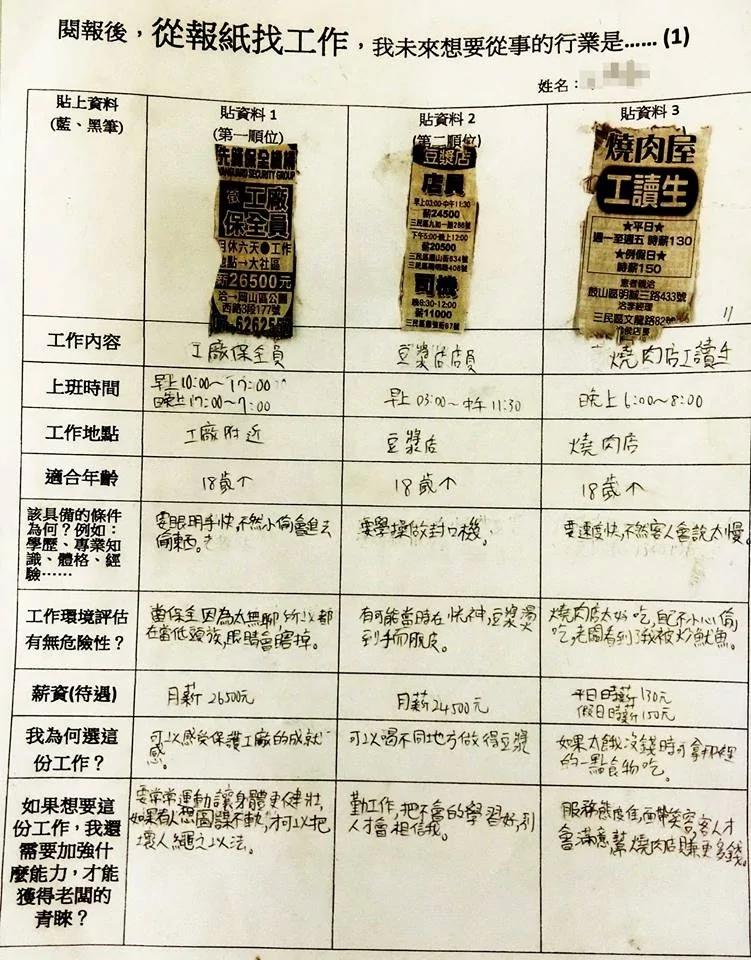 閱報後，從報紙找工作，我未來想要從事的行業是…… (1)
姓名：
貼上資料
(藍、黑筆)
貼資料 1
(第一順位)
貼資料 2
(第二順位)
貼資料 3
先鋒保全
VANGUARD SECURITY GROUP
徵工廠
保全員
月休六天●工作
地點→大社區
薪26500元
洽→岡山區公園
西路3段177號
6262
豆漿店
店員
早上03:00-中午11:30
薪24500
三民區九如一路286號
下午5:00-晚上12:00
薪20500
三民區鼎山街634號
三民區陽明路408號
司機
晚8:30-12:00
薪11000
燒肉屋
工讀生
★平日★
週一至週五 時薪130
★例假日★
時薪150
意者親洽
鼓山區明誠三路433號
洽李經理
三民區文龍路82號
洽侯店長
工作內容
工廠保全員
豆漿店店員
燒肉店工讀生
上班時間
早上10:00～17:00
晚上17:00～7:00
早上03:00～中午11:30
晚上6:00～8:00
工作地點
工廠附近
豆漿店
燒肉店
適合年齡
18歲个
18歲个
18歲个
該具備的條件
為何？例如：
學歷、專業知
識、體格、經
驗……
要眼明手快，不然小偷會進去
偷東西。
要學操做封口機。
要速度快，不然客人會說太慢。
工作環境評估
有無危險性？
當保全因為太無聊所以都
在當低頭族，眼睛會瞎掉。
有可能當時在恍神，豆漿燙
到手而脫皮。
燒肉店太好吃，
吃，老闆看到了我被炒魷魚。
薪資(待遇)
月薪26500元
月薪24500元
平日時薪130元
假日時薪150元
我為何選這
份工作？
可以感受保護工廠的成就
感。
可以喝不同地方做得豆漿
如果太餓沒錢時可拿那裡
的一點食物吃。
如果想要這
份工作，我還
需要加強什
麼能力，才能
獲得老闆的
青睞？
要常常運動讓身體更健壯，
如果有人想圖謀不軌，才可以把
壞人繩之以法。
勤工作，把不會的學習好，別
人才會相信我。
服務態度佳，面帶笑容，客人才
會滿意幫燒肉店賺更多錢。